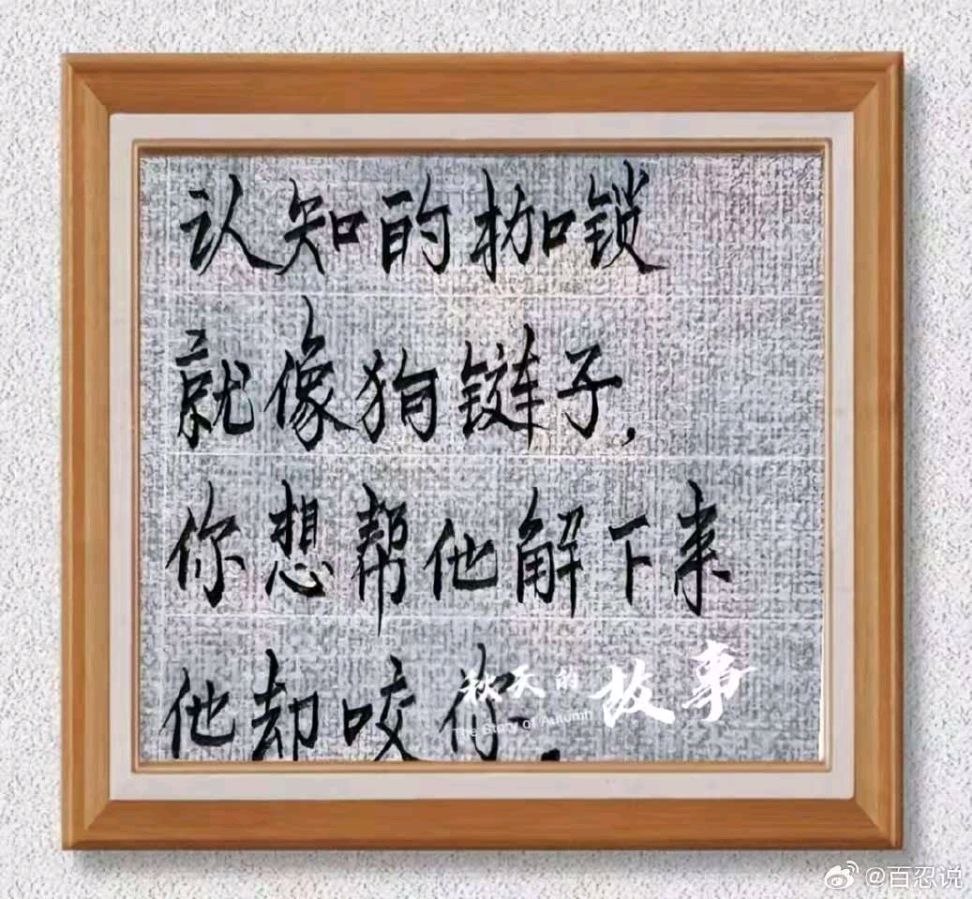 认知的枷锁
就像狗链子,
你想帮他解下来
他却咬你.
秋天的故事
The Story of Autumn
@百忍说